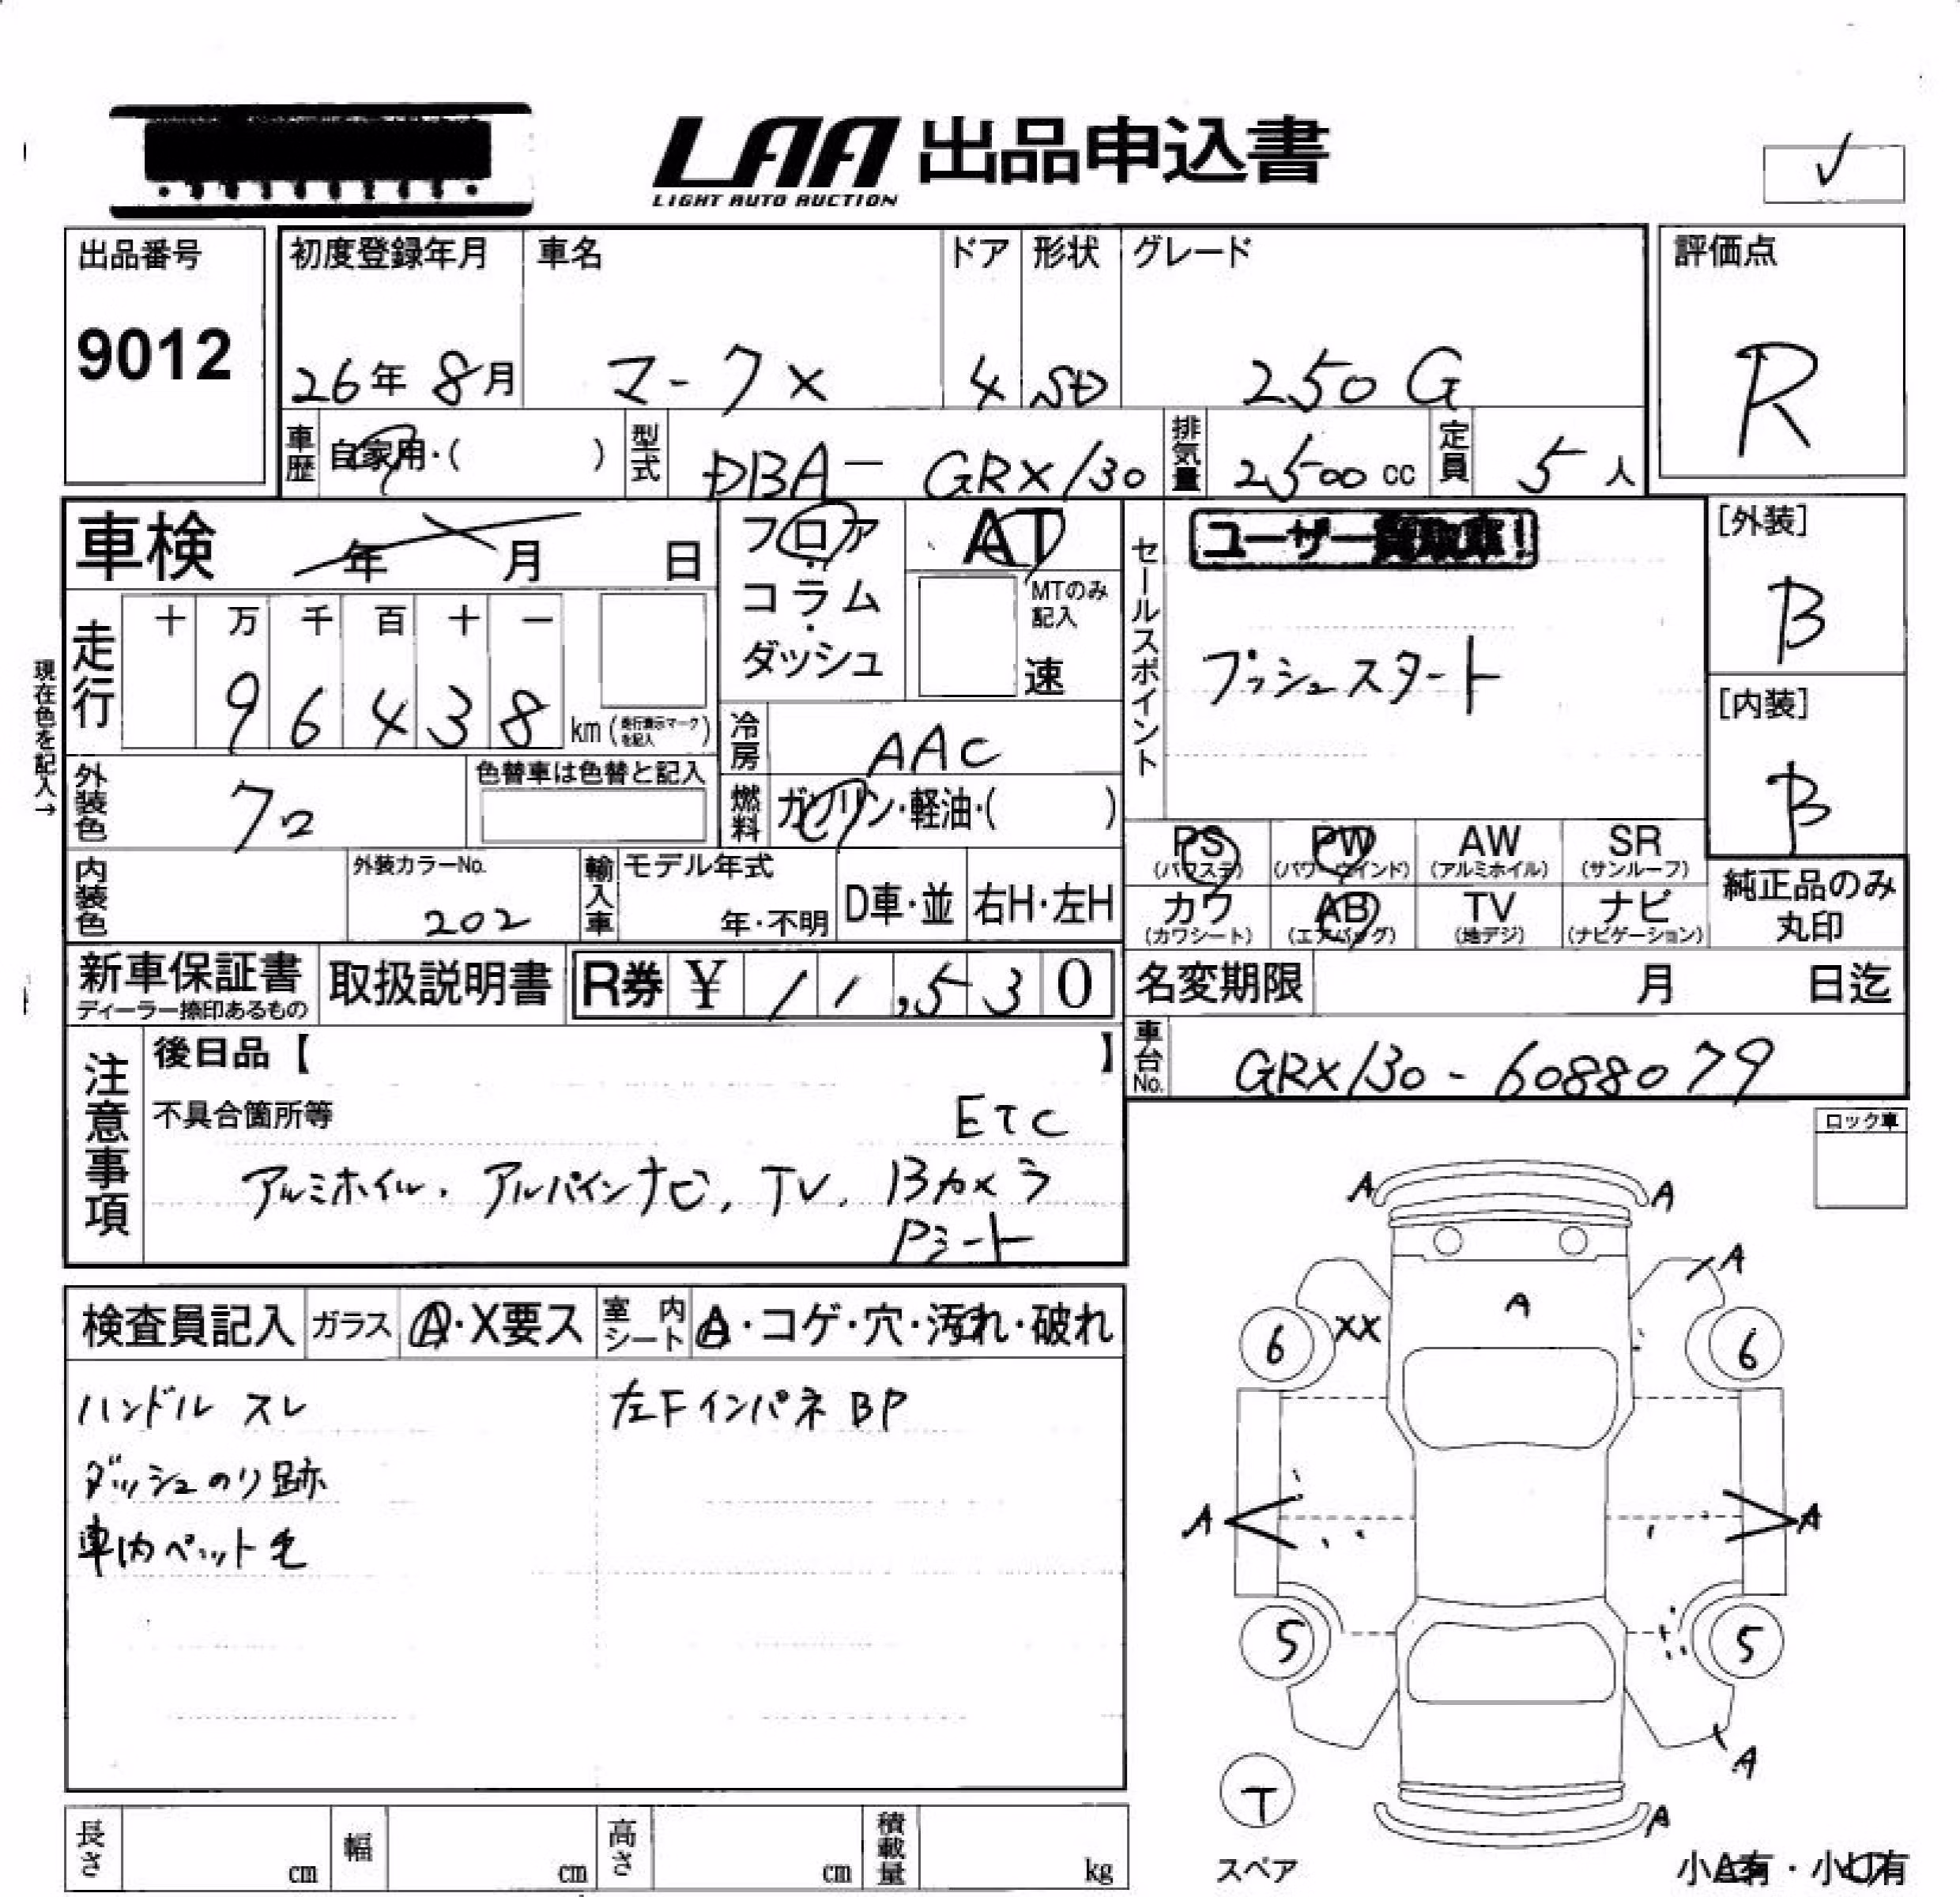 LAA 出品申込書
LIGHT AUTO AUCTION
✓
出品番号
9012
初度登録年月
26年 8月
車名
マークX
ドア
4
形状
SD
グレード
250G
評価点
R
車歴 自家用・( )
型式 DBA- GRX130
排気量 2500 cc
定員 5 人
車検 年 月 日
フロア・コラム・ダッシュ
AT
MTのみ記入
速
セールスポイント
ユーザー買取車!
プッシュスタート
[外装]
B
[内装]
B
走行 十 万 千 百 十 一
9 6 4 3 8 km (走行表示マークを記入)
現在色を記入→
冷房 AAC
燃料 ガソリン・軽油・( )
外装色 クロ
色替車は色替と記入
内装色
外装カラーNo.
202
輸入車 モデル年式
年・不明
D車・並 右H・左H
PS (パワステ) PW (パワーウインド) AW (アルミホイル) SR (サンルーフ)
カワ (カワシート) AB (エアバッグ) TV (地デジ) ナビ (ナビゲーション)
純正品のみ丸印
新車保証書
ディーラー捺印あるもの
取扱説明書
R券 ¥ 11,530
名変期限 月 日迄
車台No. GRX130-6088079
注意事項
後日品【 】
不具合箇所等
ETC
アルミホイル. アルパインナビ, TV, Bカメラ
Pシート
ロック車
検査員記入 ガラス A・X要ス 室内シート A・コゲ・穴・汚れ・破れ
ハンドル スレ
左FインパネBP
ダッシュのり跡
車内ペット毛
A A
A
A
XX
6 6
A A
5 5
A
A
T
スペア
小A有・小U有
長さ cm 幅 cm 高さ cm 積載量 kg